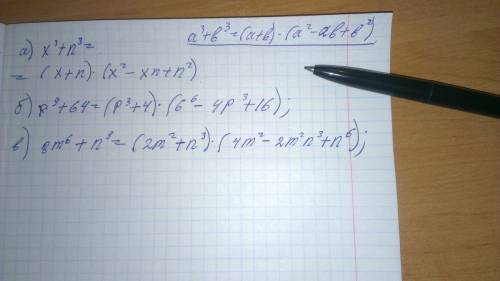 a³+b³=(a+b)·(a²-ab+b²)
а) x³+n³=
= (x+n)·(x²-xn+n²)
б) p⁹+64=(p³+4)·(6⁶-4p³+16);
в) 8m⁶+n⁹=(2m²+n³)·(4m²-2m²n³+n⁶);